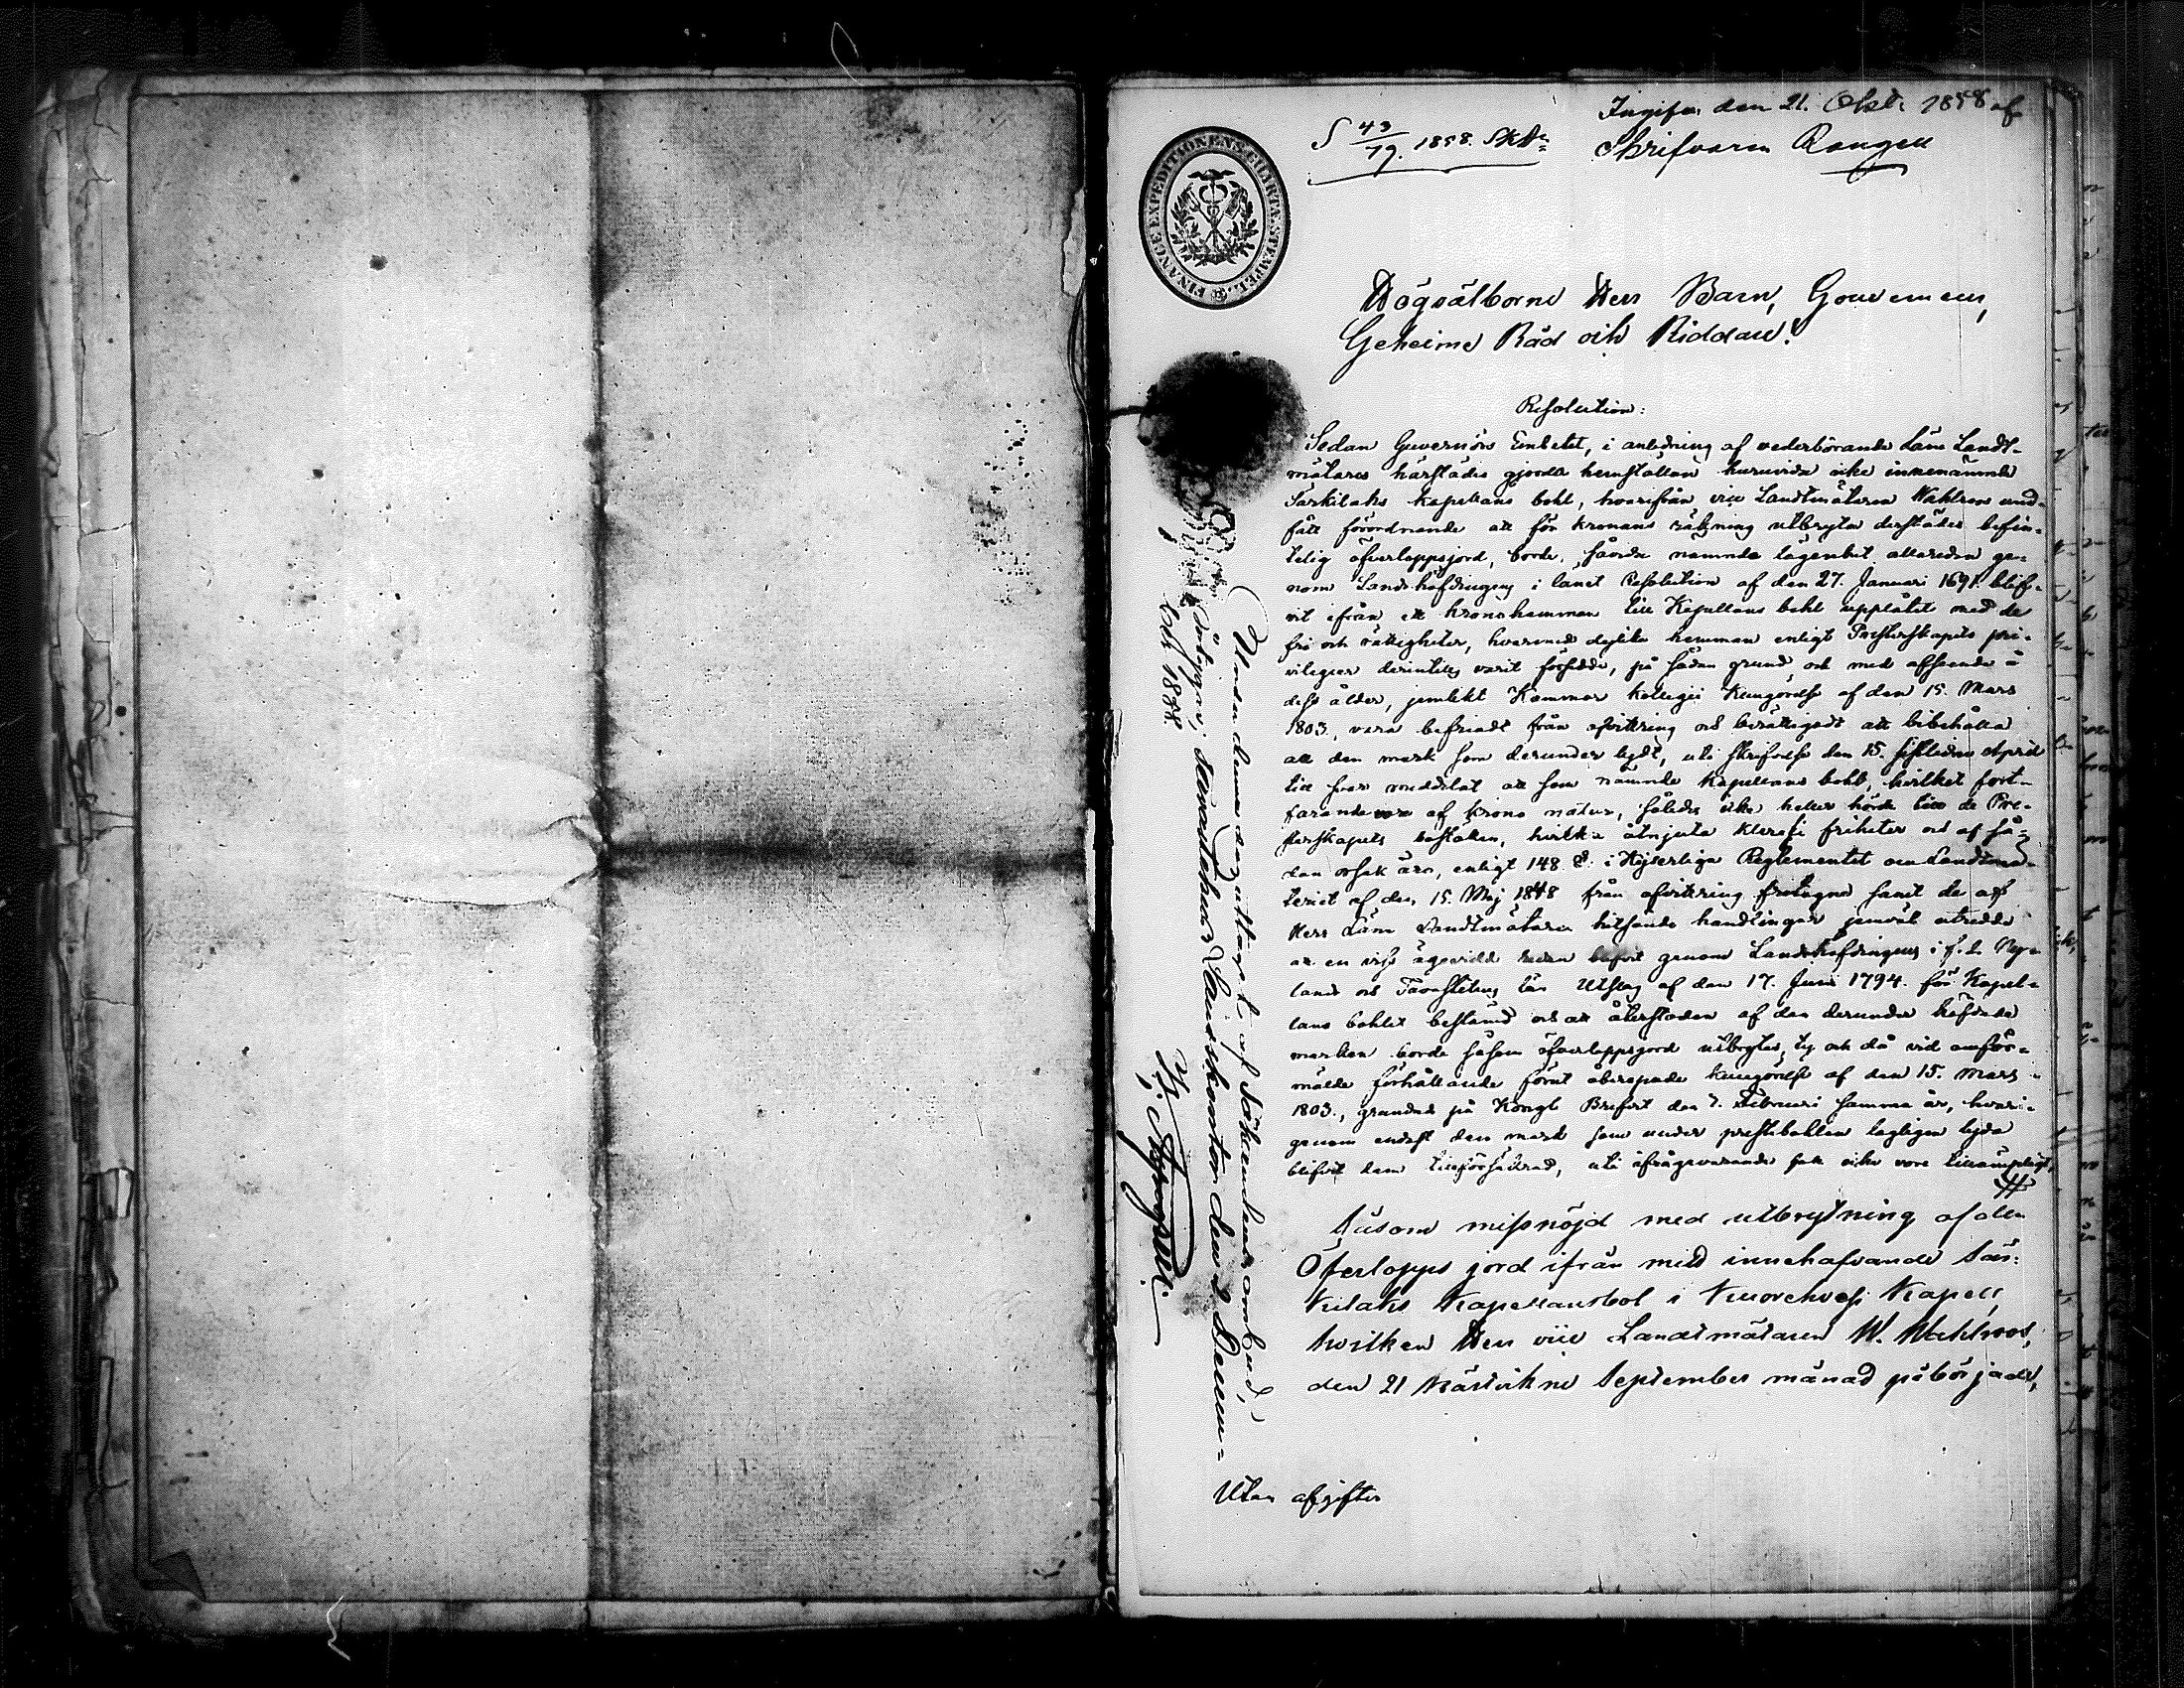 Ingifven den 21. Okt. 1858 af
Skrifvaren Rongell
S 43/19. 1858. Skt.
FINANCE EXPEDITIONENS CHARTÆ STEMPEL.
Högvälborne Herr Baron, Gouverneur,
Geheime Råd och Riddare!
Resolution:
Sedan Guvernörs Embetet, i anledning af vederbörande Läne Landt-
mätares härstädes gjorda hemställan huruvida icke innenämnde
Särkilaks Kapellans bohl, hvarifrån vice Landtmätaren Wahlroos und-
fått förordnande att för Kronans räkning utbryta derstädes befin-
telig öfverloppsjord, borde, såvida nämnda lägenhet allaredan ge-
nom Landshöfdingens i länet Resolution af den 27. Januari 1691 blif-
vit ifrån ett kronohemman till Kapellans bohl upplåtet med de
fri och rättigheter, hvarmed dylika hemman enligt Presterskapets pri-
vilegier derintills varit försedde, på sådan grund och med afseende å
dess ålder, jemlikt Kammar Kollegii Kungörelse af den 15. Mars
1803., vara befriadt från afvittring och berättigadt att bibehålla
all den mark som derunder lydt, uti skrifvelse den 15. sistledne April
till svar meddelat att som nämnde Kapellans bohl, hvilket fort-
farande vore af krono natur, således icke heller hörde till de Pre-
sterskapets boställen, hvilka åtnjuta kleresi friheter och af så-
dan orsak äro, enligt 148 §. i Kejserliga Reglementet om Landtmä-
teriet af den 15. Maj 1848 från afvittring fritagne samt de af
Herr Läne Landtmätaren hitsände handlingar jemväl utredde
att en viss ägovidd redan blifvit genom Landshöfdingens i f. d. Ny-
lands och Tavastehus län Utslag af den 17. Juni 1794. för Kapel-
lans bohlet bestämd och att återstoden af den derunder häfdade
marken borde såsom öfverloppsjord utbrytas, ty och då vid omför-
mälde förhållande förut åberopade kungörelse af den 15. Mars
1803., grundad på Kongl. Brefvet den 7. Februari samma år, hvari-
genom endast den mark som under prestebohlen lagligen lyda
blifvit dem tillförsäkrad, uti ifrågavarande fall icke vore tillämpligt,
Såsom missnöjd med utbrytning af den
Öferlopps jord ifrån mitt innehafvande Sär-
kilaks Kapellansbol i Kuorehvesi Kapell,
hvilken Herr vice Landtmätaren W. Wahlroos,
den 21 nästvikne September månad påbörjade,
Utan afgifter
Under denna dag uttaget af Sökandens ombud,
betygar; Tavastehus Landskontor den 2 Decem-
ber 1858.